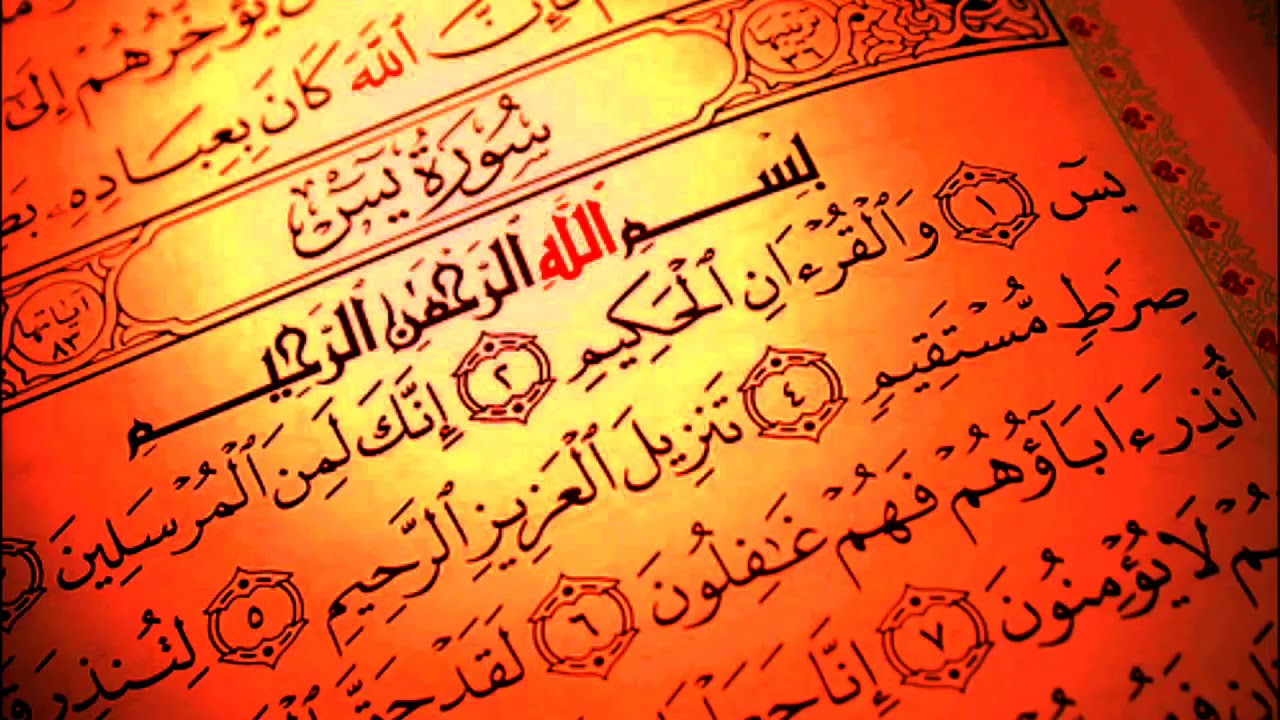 يُؤَخِّرُهُمْ إِلَىٰ
فَإِنَّ ٱللَّهَ كَانَ بِعِبَادِهِۦ
سُورَةُ يسٓ
آياتها ٨٣
بِسْمِ اللَّهِ الرَّحْمَٰنِ الرَّحِيمِ
يسٓ ١ وَٱلْقُرْءَانِ ٱلْحَكِيمِ ٢ إِنَّكَ لَمِنَ ٱلْمُرْسَلِينَ
صِرَٰطٍ مُّسْتَقِيمٍ ٤ تَنزِيلَ ٱلْعَزِيزِ ٱلرَّحِيمِ ٥ لِتُنذِرَ
أُنذِرَ ءَابَآؤُهُمْ فَهُمْ غَٰفِلُونَ ٦ لَقَدْ حَقَّ
لَا يُؤْمِنُونَ ٧ إِنَّا